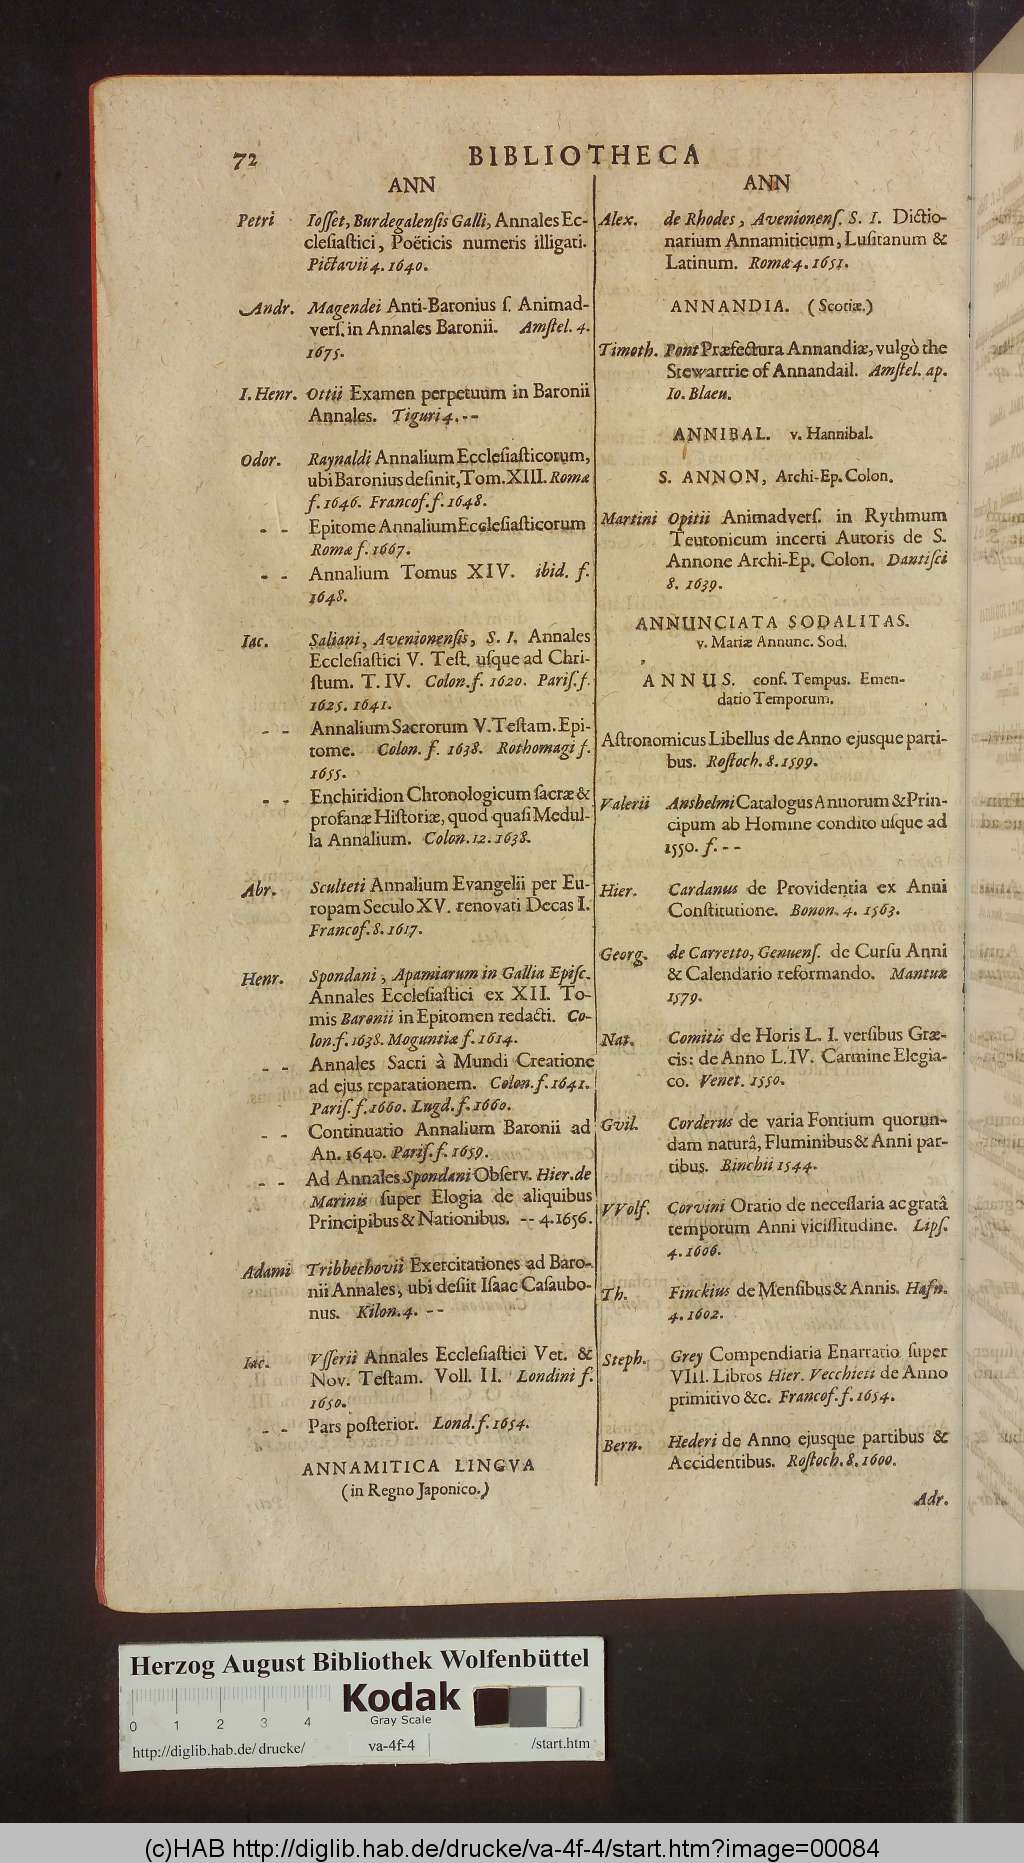 72
BIBLIOTHECA
ANN
Petri Iosset, Burdegalensis Galli, Annales Ec-
clesiastici, Poëticis numeris illigati.
Pictavii 4. 1640.
Andr. Magendei Anti-Baronius ſ. Animad-
verſ. in Annales Baronii. Amſtel. 4.
1675.
I. Henr. Ottii Examen perpetuum in Baronii
Annales. Tiguri 4. --
Odor. Raynaldi Annalium Eccleſiaſticorum,
ubi Baronius deſinit, Tom. XIII. Romæ
f. 1646. Francof. f. 1648.
- - Epitome Annalium Eccleſiaſticorum
Romæ f. 1667.
- - Annalium Tomus XIV. ibid. f.
1648.
Iac. Saliani, Avenionenſis, S. I. Annales
Eccleſiaſtici V. Teſt. uſque ad Chri-
ſtum. T. IV. Colon. f. 1620. Pariſ. f.
1625. 1641.
- - Annalium Sacrorum V. Teſtam. Epi-
tome. Colon. f. 1638. Rothomagi f.
1655.
- - Enchiridion Chronologicum ſacræ &
profanæ Hiſtoriæ, quod quaſi Medul-
la Annalium. Colon. 12. 1638.
Abr. Sculteti Annalium Evangelii per Eu-
ropam Seculo XV. renovati Decas I.
Francof. 8. 1617.
Henr. Spondani, Apamiarum in Gallia Epiſc.
Annales Eccleſiaſtici ex XII. To-
mis Baronii in Epitomen redacti. Co-
lon. f. 1638. Moguntiæ f. 1614.
- - Annales Sacri à Mundi Creatione
ad ejus reparationem. Colon. f. 1641.
Pariſ. f. 1660. Lugd. f. 1660.
- - Continuatio Annalium Baronii ad
An. 1640. Pariſ. f. 1659.
- - Ad Annales Spondani Obſerv. Hier. de
Marinis ſuper Elogia de aliquibus
Principibus & Nationibus. -- 4. 1656.
Adami Tribbechovii Exercitationes ad Baro-
nii Annales, ubi deſiit Iſaac Caſaubo-
nus. Kilon. 4. --
Iac. Vſſerii Annales Eccleſiaſtici Vet. &
Nov. Teſtam. Voll. II. Londini f.
1650.
- - Pars poſterior. Lond. f. 1654.
ANNAMITICA LINGVA
(in Regno Japonico.)
ANN
Alex. de Rhodes, Avenionenſ. S. I. Dictio-
narium Annamiticum, Luſitanum &
Latinum. Romæ 4. 1651.
ANNANDIA. (Scotiæ.)
Timoth. Pont Præfectura Annandiæ, vulgò the
Stewartrie of Annandail. Amſtel. ap.
Io. Blaeu.
ANNIBAL. v. Hannibal.
S. ANNON, Archi-Ep. Colon.
Martini Opitii Animadverſ. in Rythmum
Teutonicum incerti Autoris de S.
Annone Archi-Ep. Colon. Dantiſci
8. 1639.
ANNUNCIATA SODALITAS.
v. Mariæ Annunc. Sod.
ANNUS. conf. Tempus. Emen-
datio Temporum.
Aſtronomicus Libellus de Anno ejusque parti-
bus. Roſtoch. 8. 1599.
Valerii Anshelmi Catalogus Annorum & Prin-
cipum ab Homine condito uſque ad
1550. f. --
Hier. Cardanus de Providentia ex Anni
Conſtitutione. Bonon. 4. 1563.
Georg. de Carretto, Genuenſ. de Curſu Anni
& Calendario reformando. Mantuæ
1579.
Nat. Comitis de Horis L. I. verſibus Græ-
cis: de Anno L. IV. Carmine Elegia-
co. Venet. 1550.
Gvil. Corderus de varia Fontium quorun-
dam naturâ, Fluminibus & Anni par-
tibus. Binchii 1544.
VVolf. Corvini Oratio de neceſſaria ac gratâ
temporum Anni viciſſitudine. Lipſ.
4. 1606.
Th. Finckius de Menſibus & Annis. Hafn.
4. 1602.
Steph. Grey Compendiaria Enarratio ſuper
VIII. Libros Hier. Vecchieti de Anno
primitivo &c. Francof. f. 1654.
Bern. Hederi de Anno ejusque partibus &
Accidentibus. Roſtoch. 8. 1600.
Adr.
Herzog August Bibliothek Wolfenbüttel
Kodak
Gray Scale
0 1 2 3 4
http://diglib.hab.de/drucke/ va-4f-4 /start.htm
(c)HAB http://diglib.hab.de/drucke/va-4f-4/start.htm?image=00084